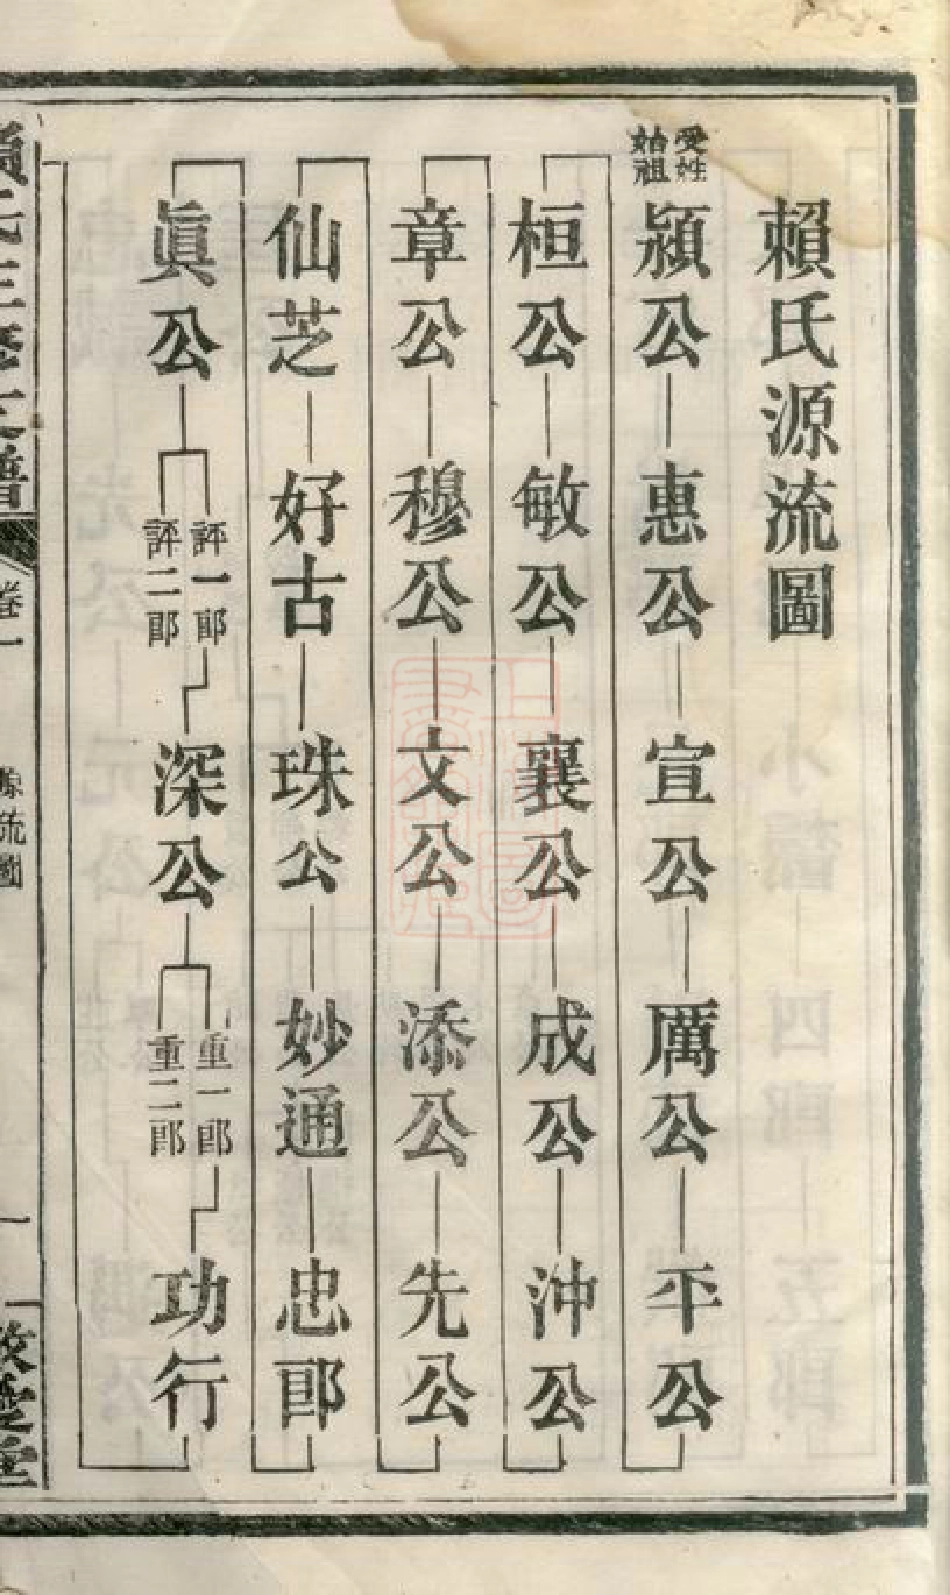 賴氏源流圖
受姓始祖
潁公 惠公 宣公 厲公 平公
桓公 敏公 襄公 成公 沖公
章公 穆公 文公 添公 先公
仙芝 好古 珠公 妙通 忠郎
眞公 評一郎 評二郎 深公 重一郎 重二郎 功行
卷一
源流圖
一
敦
堂